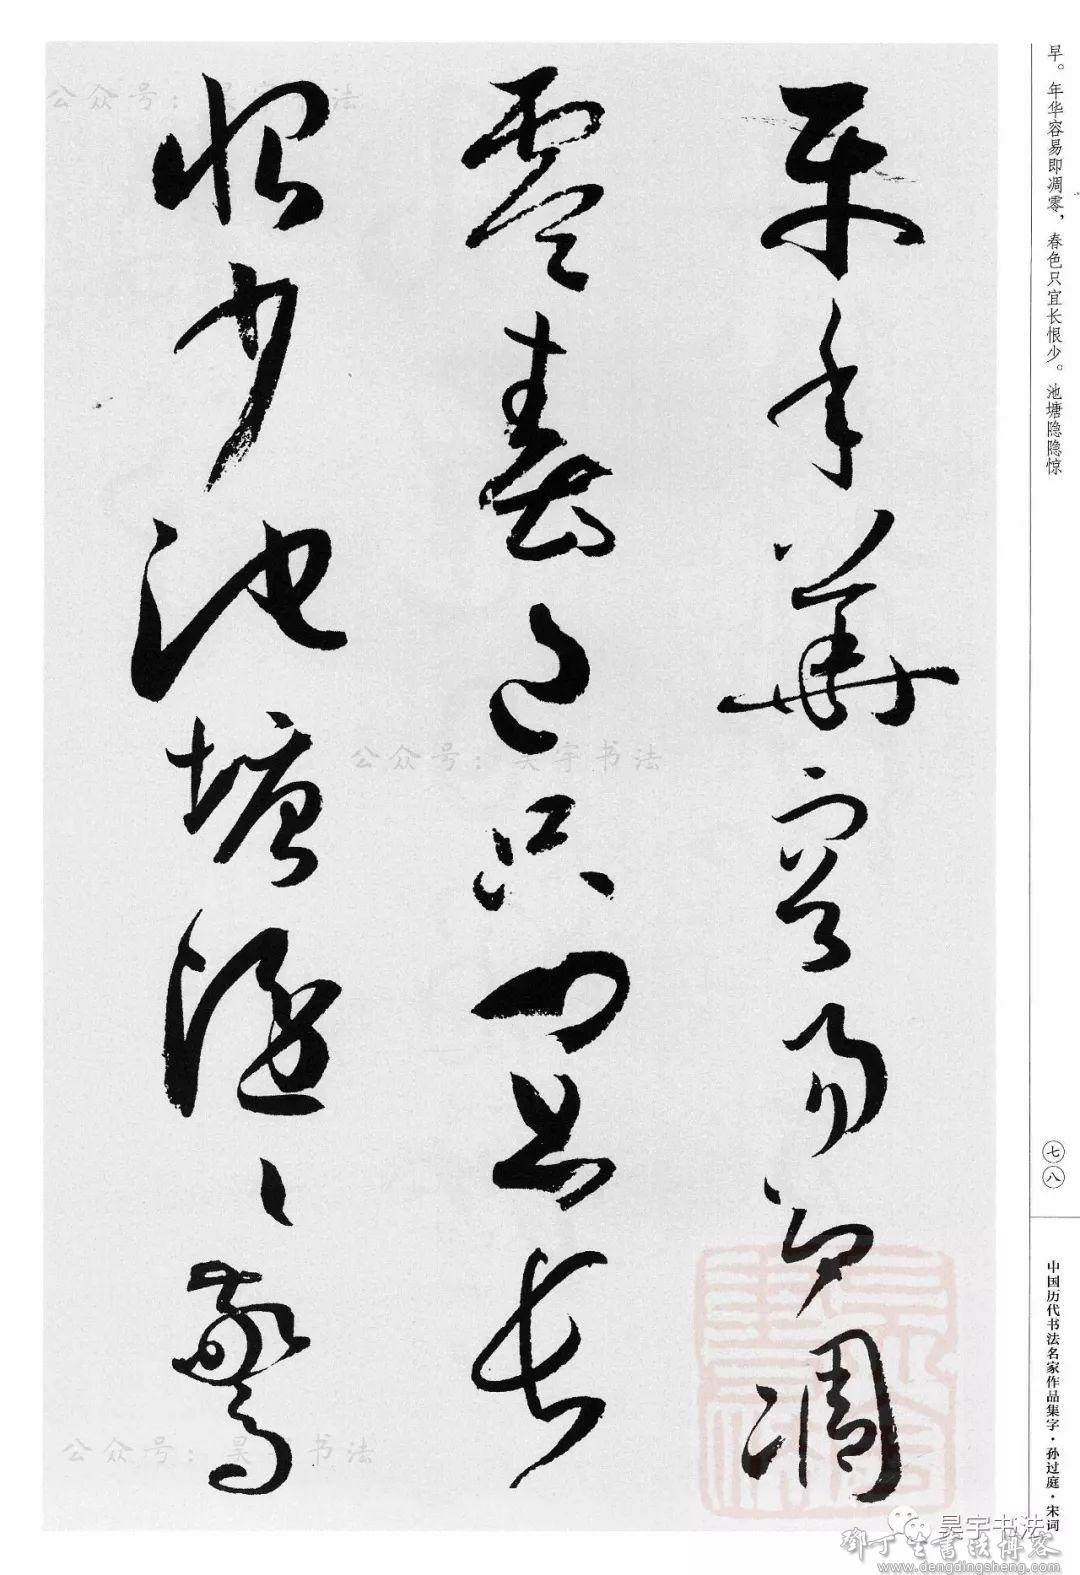 早。年华容易即凋零，春色只宜长恨少。池塘隐隐惊
早年華容易即凋
零春色只宜長
恨少池塘隱々驚
七八
中国历代书法名家作品集字·孙过庭·宋词
公众号：昊宇书法
公众号：昊宇书法
公众号：昊宇书法
昊宇书法
鄧丁生書法博客
www.dengdingsheng.com